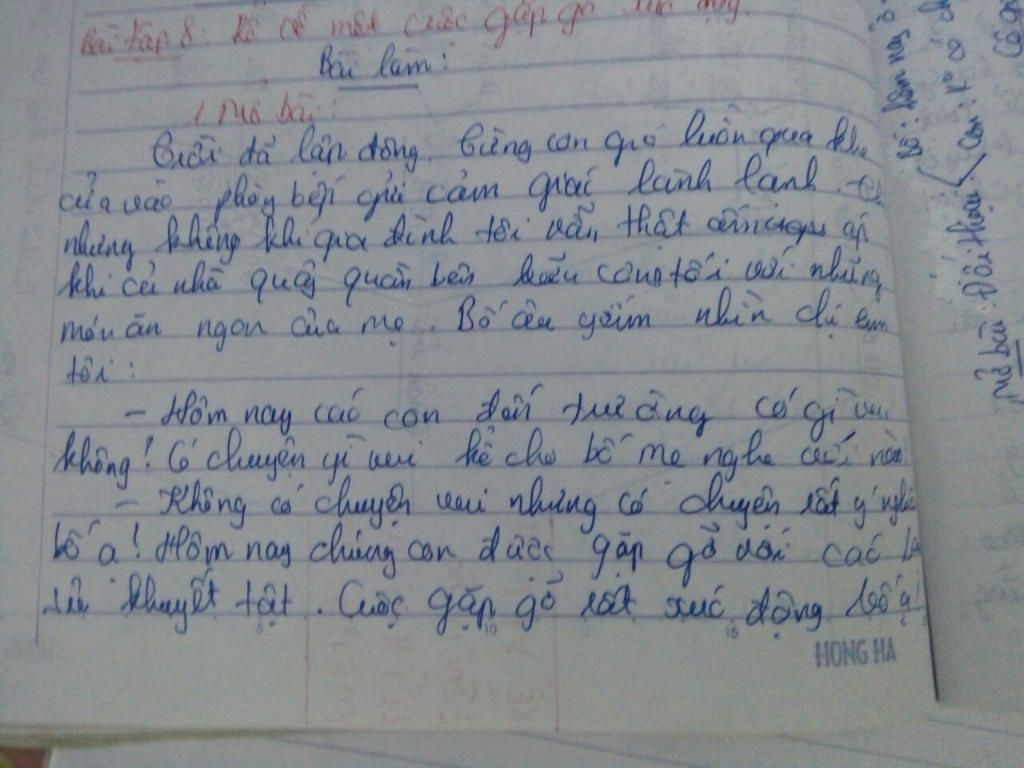 Bài tập 8: Kể về một cuộc gặp gỡ xúc động.
Bài làm:
1, Mở bài:
Trời đã lập đông. Từng cơn gió luồn qua khe
cửa vào phòng bếp gửi cảm giác lành lạnh.
nhưng không khí gia đình tôi vẫn thật ấm áp
khi cả nhà quây quần bên bữa cơm tối với những
món ăn ngon của mẹ. Bố âu yếm nhìn chị em
tôi:
- Hôm nay các con đến trường có gì vui
không! Có chuyện gì vui kể cho bố mẹ nghe với nào!
- Không có chuyện vui nhưng có chuyện rất ý nghĩa
bố ạ! Hôm nay chúng con được gặp gỡ với các
khuyết tật. Cuộc gặp gỡ rất xúc động bố ạ!
HONG HA
Bố: Hôm nay ở
Con: Ko có ch
Mở bài: Đối thoại